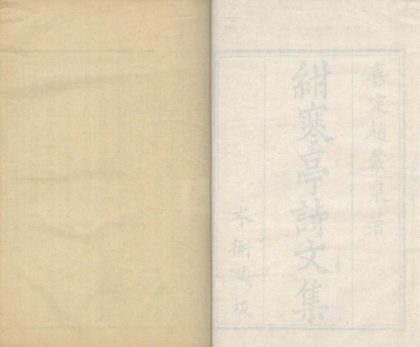 嘉定趙俞蒙著
紺寒亭詩文集
本衙藏板